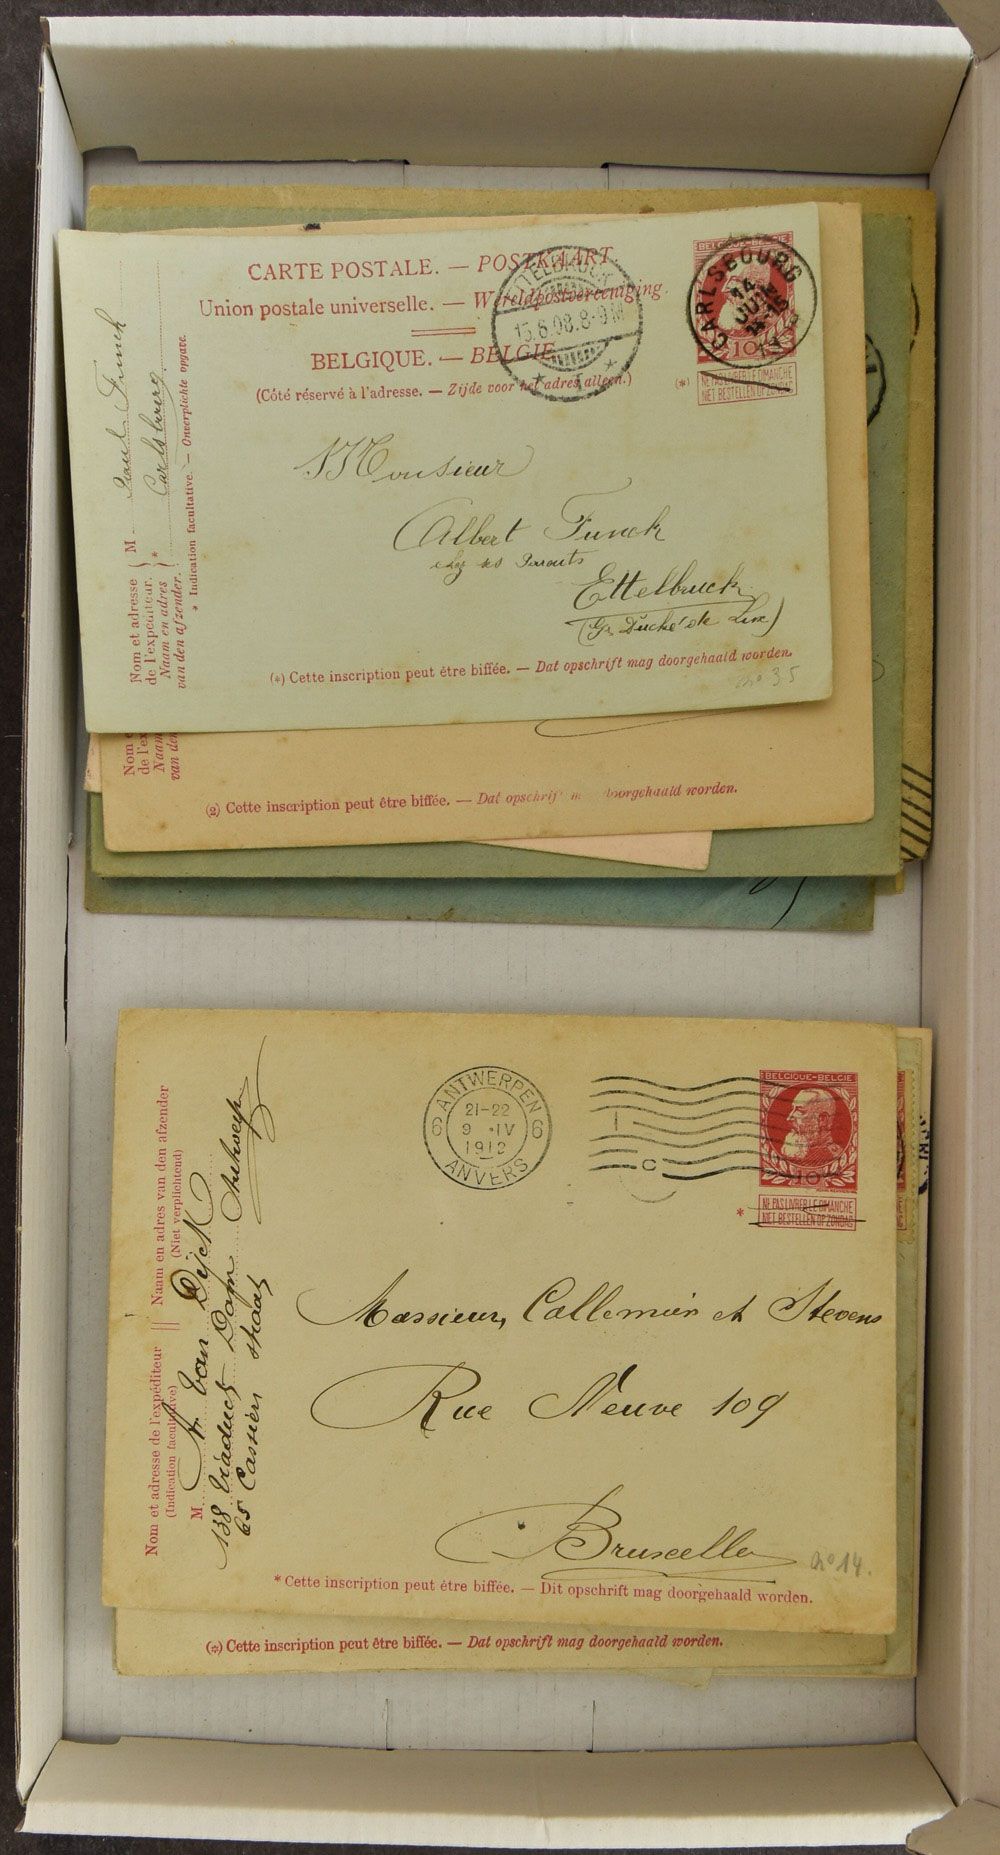 CARTE POSTALE. — POSTKAART.
Union postale universelle. — Wereldpostvereeniging.
BELGIQUE. — BELGIE
(Côté réservé à l'adresse. — Zijde voor het adres alleen.)
ETTELBRUCK
15.6.08.8-9M
BELGIQUE-BELGIE
10
CARLSBOURG
14
JUIN
(*)
NE PAS LIVRER LE DIMANCHE
NIET BESTELLEN OP ZONDAG
Nom et adresse
de l'expéditeur.
Naam en adres
van den afzender.
M
Paul Funck
* Carlsbourg
* Indication facultative — Onverplichte opgave.
Monsieur
Albert Funck
chez ses Parents
Ettelbruck
(Gr. Duché de Lux)
(*) Cette inscription peut être biffée. — Dat opschrift mag doorgehaald worden.
no 35
Nom e
de l'ex
Naam
van den
(2) Cette inscription peut être biffée. — Dat opschrif m doorgehaald worden.
ANTWERPEN
6 6
21-22
9 IV
1912
ANVERS
C
BELGIQUE-BELGIE
10
*
NE PAS LIVRER LE DIMANCHE
NIET BESTELLEN OP ZONDAG
Nom et adresse de l'expéditeur || Naam en adres van den afzender
(Indication facultative) (Niet verplichtend)
M A. Van Dijck
138 Viaduct Dam Antwerp
65 Cassiers straat
Messieurs, Callemien et Stevens
Rue Neuve 109
Bruxelles
no 14.
* Cette inscription peut être biffée. — Dit opschrift mag doorgehaald worden.
(*) Cette inscription peut être biffée. — Dat opschrift mag doorgehaald worden.